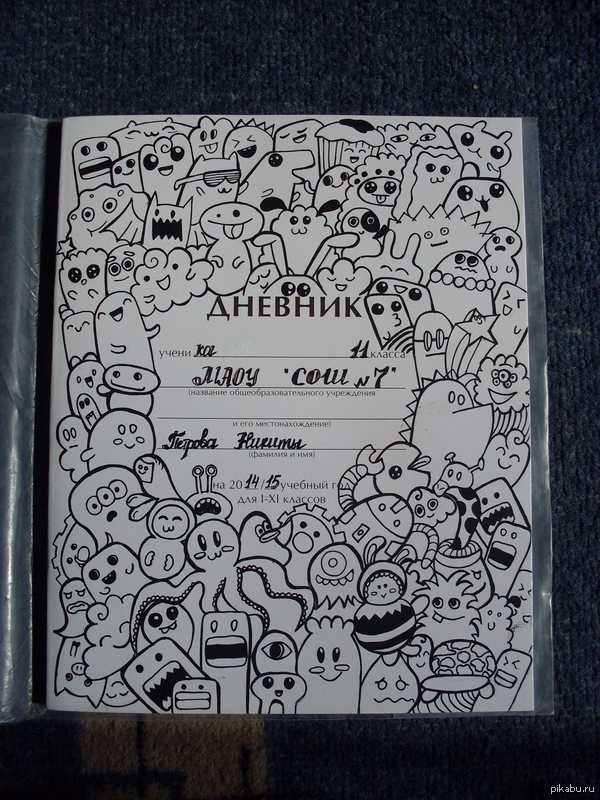 ДНЕВНИК
учени ка 11 класса
МАОУ "СОШ №7"
(название общеобразовательного учреждения
и его местонахождение)
Перова Никиты
(фамилия и имя)
на 2014/15 учебный год
для I-XI классов
pikabu.ru